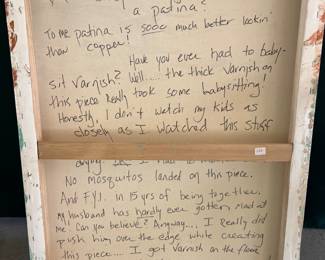 a patina?
To me patina is sooo much better lookin'
than copper!
Have you ever had to baby-
sit varnish? Well.... the thick varnish on
this piece Really took some babysitting!
Honestly, I don't watch my kids as
closely as I watched this stuff
No mosquitos landed on this piece.
And F.Y.I. in 15 yrs of being together,
My Husband has hardly ever gotten mad at
me. Can you believe? Anyway.... I really did
push him over the edge while creating
this piece.... I got varnish on the floor!